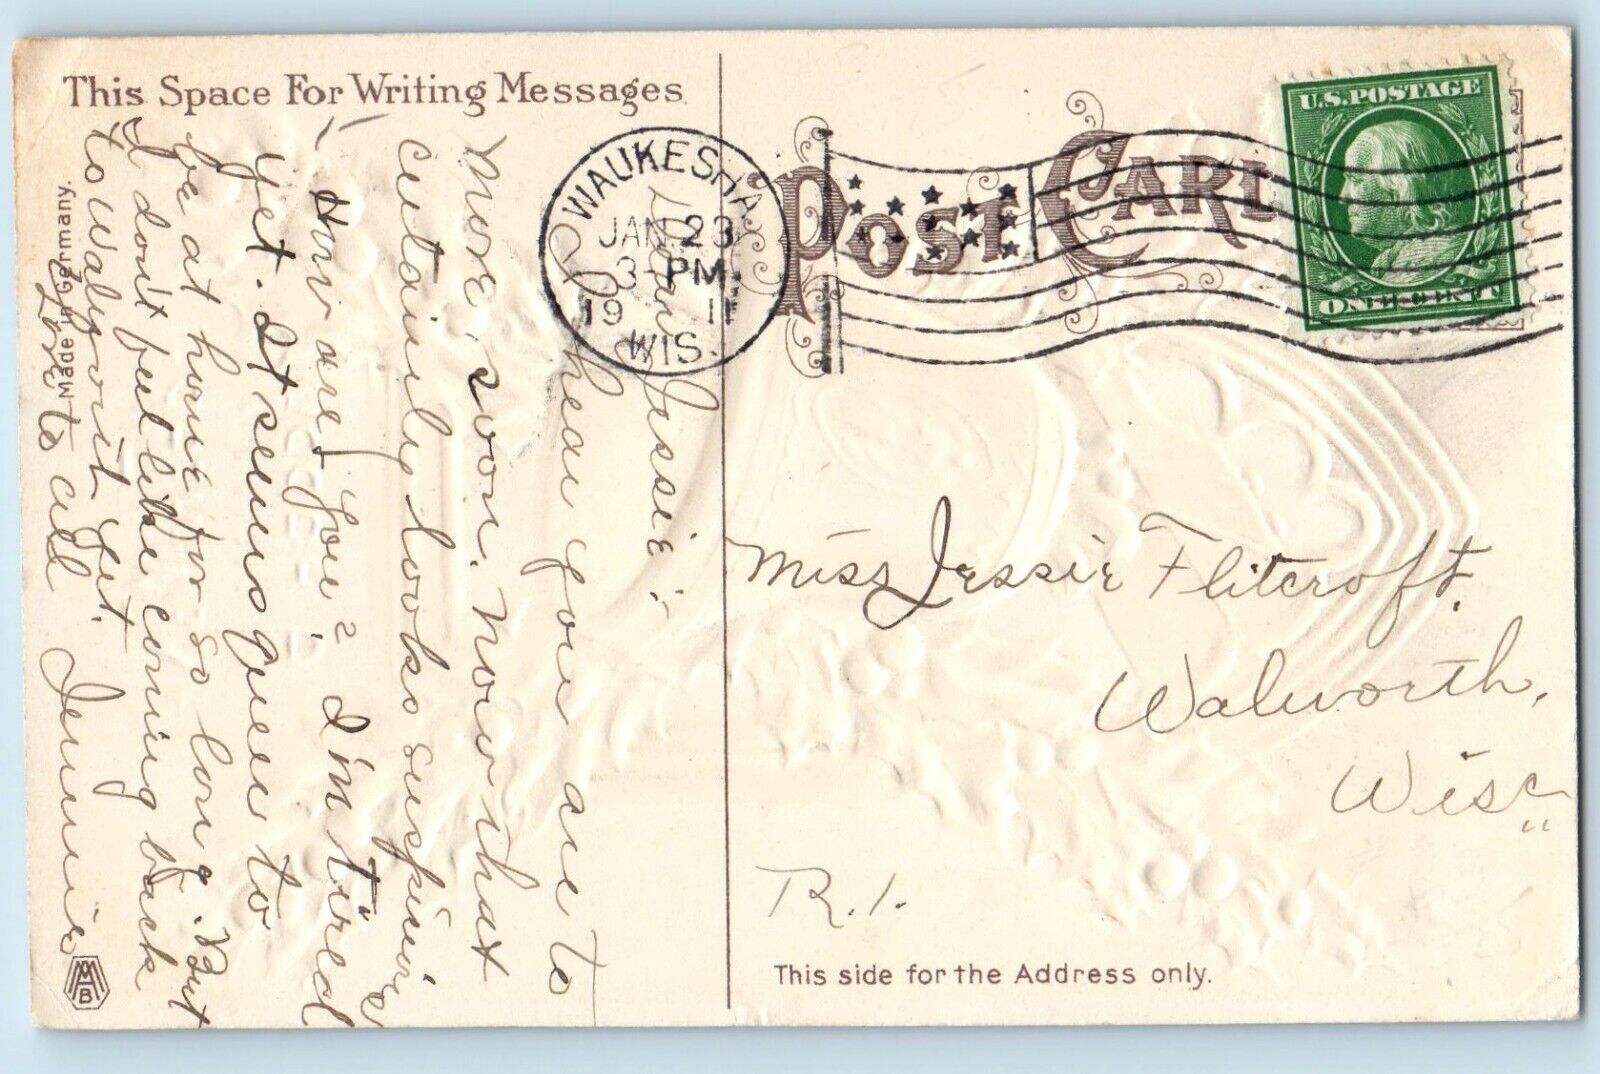 This Space For Writing Messages
Dear Jessie:-
I hear you are to
move soon. Now that
certainly looks suspicious
How are you? I'm tired
yet. It seems queer to
be at home for so long. But
I don't feel like coming back
to Walworth yet.
Love to all
Jennie
Made in Germany.
MAB
WAUKESHA
JAN 23
3-PM
1911
WIS.
POST CARD
U.S. POSTAGE
ONE CENT
Miss Jessie Flitcroft.
Walworth,
Wisc
R.1.
This side for the Address only.